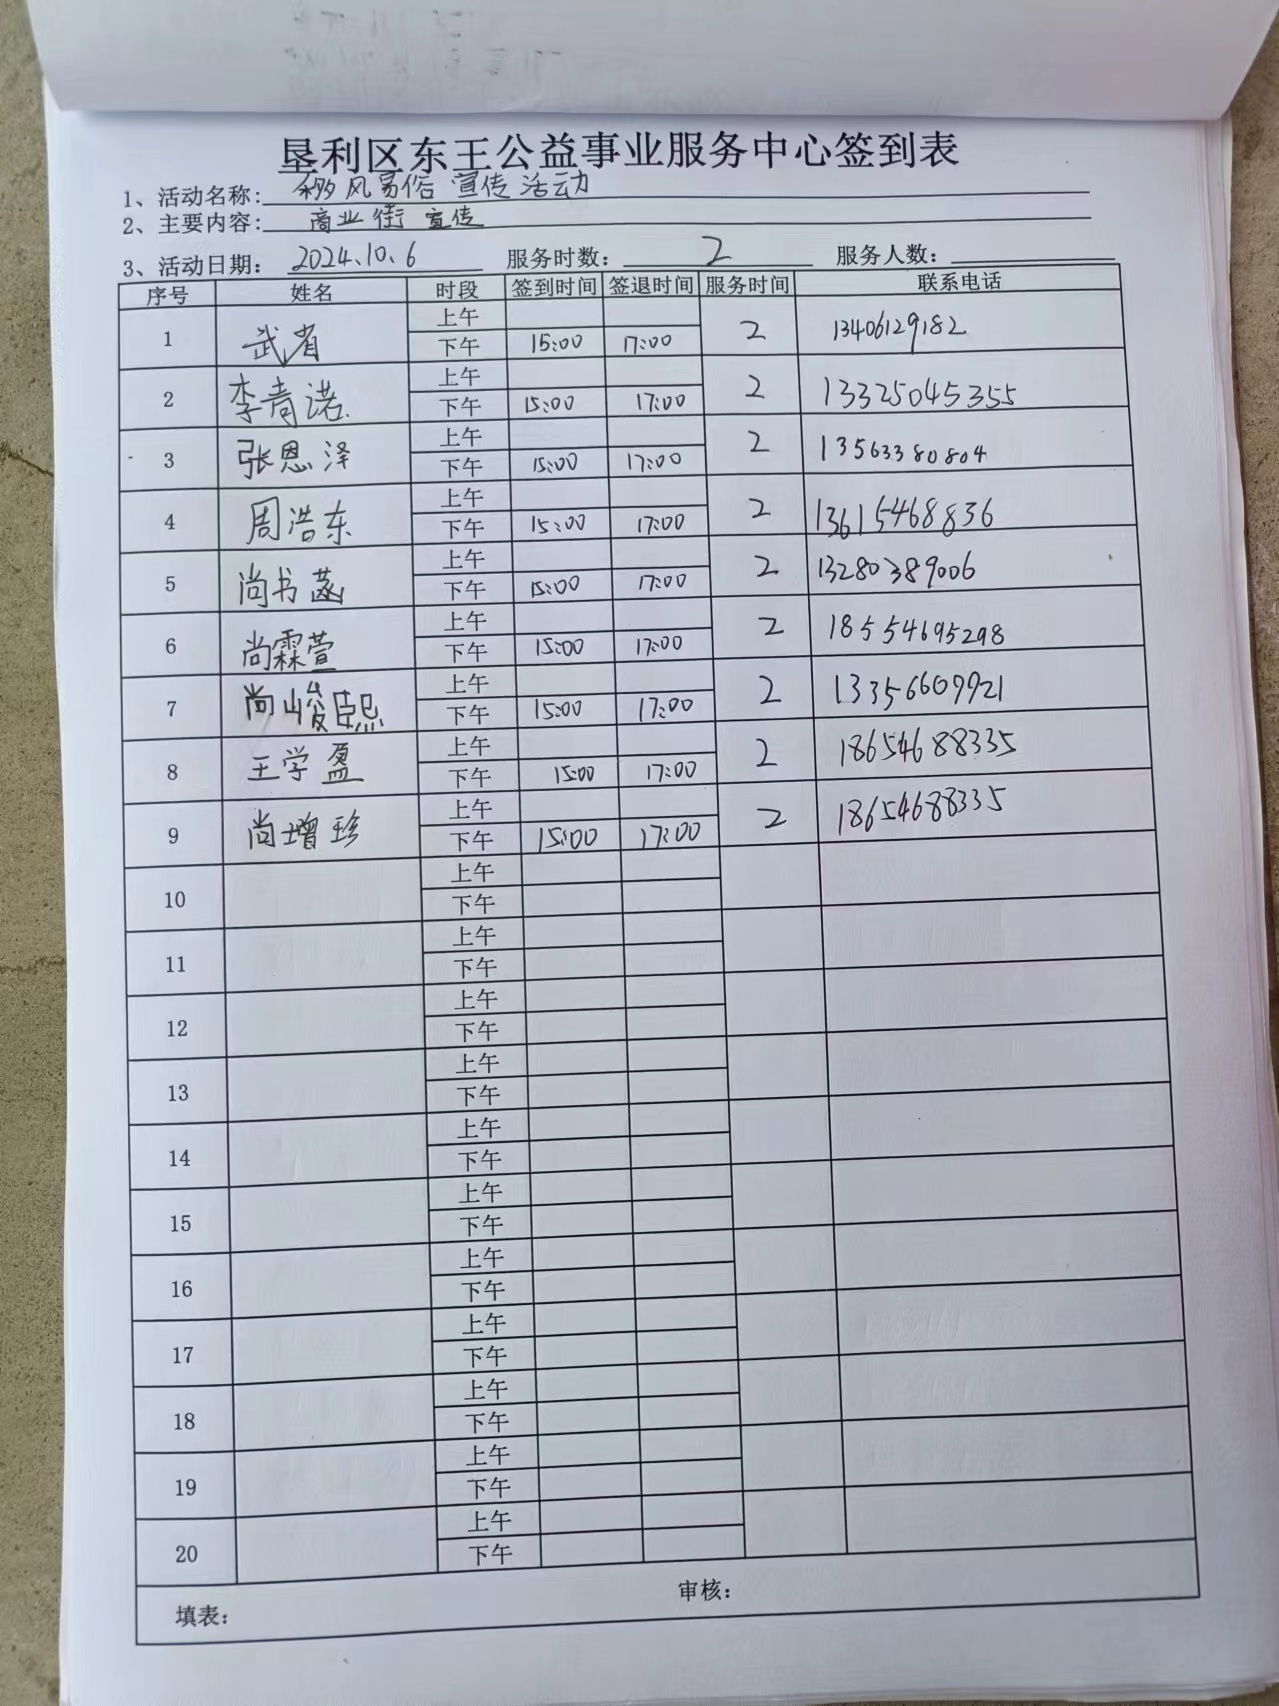 垦利区东王公益事业服务中心签到表
1、活动名称：移风易俗 宣传活动
2、主要内容：商业街 宣传
3、活动日期：2024.10.6 服务时数：2 服务人数：
序号 姓名 时段 签到时间 签退时间 服务时间 联系电话
1 武省 上午 2 13406129182
下午 15:00 17:00
2 李青诺 上午 2 13325045355
下午 15:00 17:00
3 张恩泽 上午 2 13563380804
下午 15:00 17:00
4 周浩东 上午 2 13615468836
下午 15:00 17:00
5 尚书菡 上午 2 13280389006
下午 15:00 17:00
6 尚霖萱 上午 2 18554695298
下午 15:00 17:00
7 尚峻熙 上午 2 13356609921
下午 15:00 17:00
8 王学盈 上午 2 18654688335
下午 15:00 17:00
9 尚增珍 上午 2 18654688335
下午 15:00 17:00
10 上午
下午
11 上午
下午
12 上午
下午
13 上午
下午
14 上午
下午
15 上午
下午
16 上午
下午
17 上午
下午
18 上午
下午
19 上午
下午
20 上午
下午
填表： 审核：